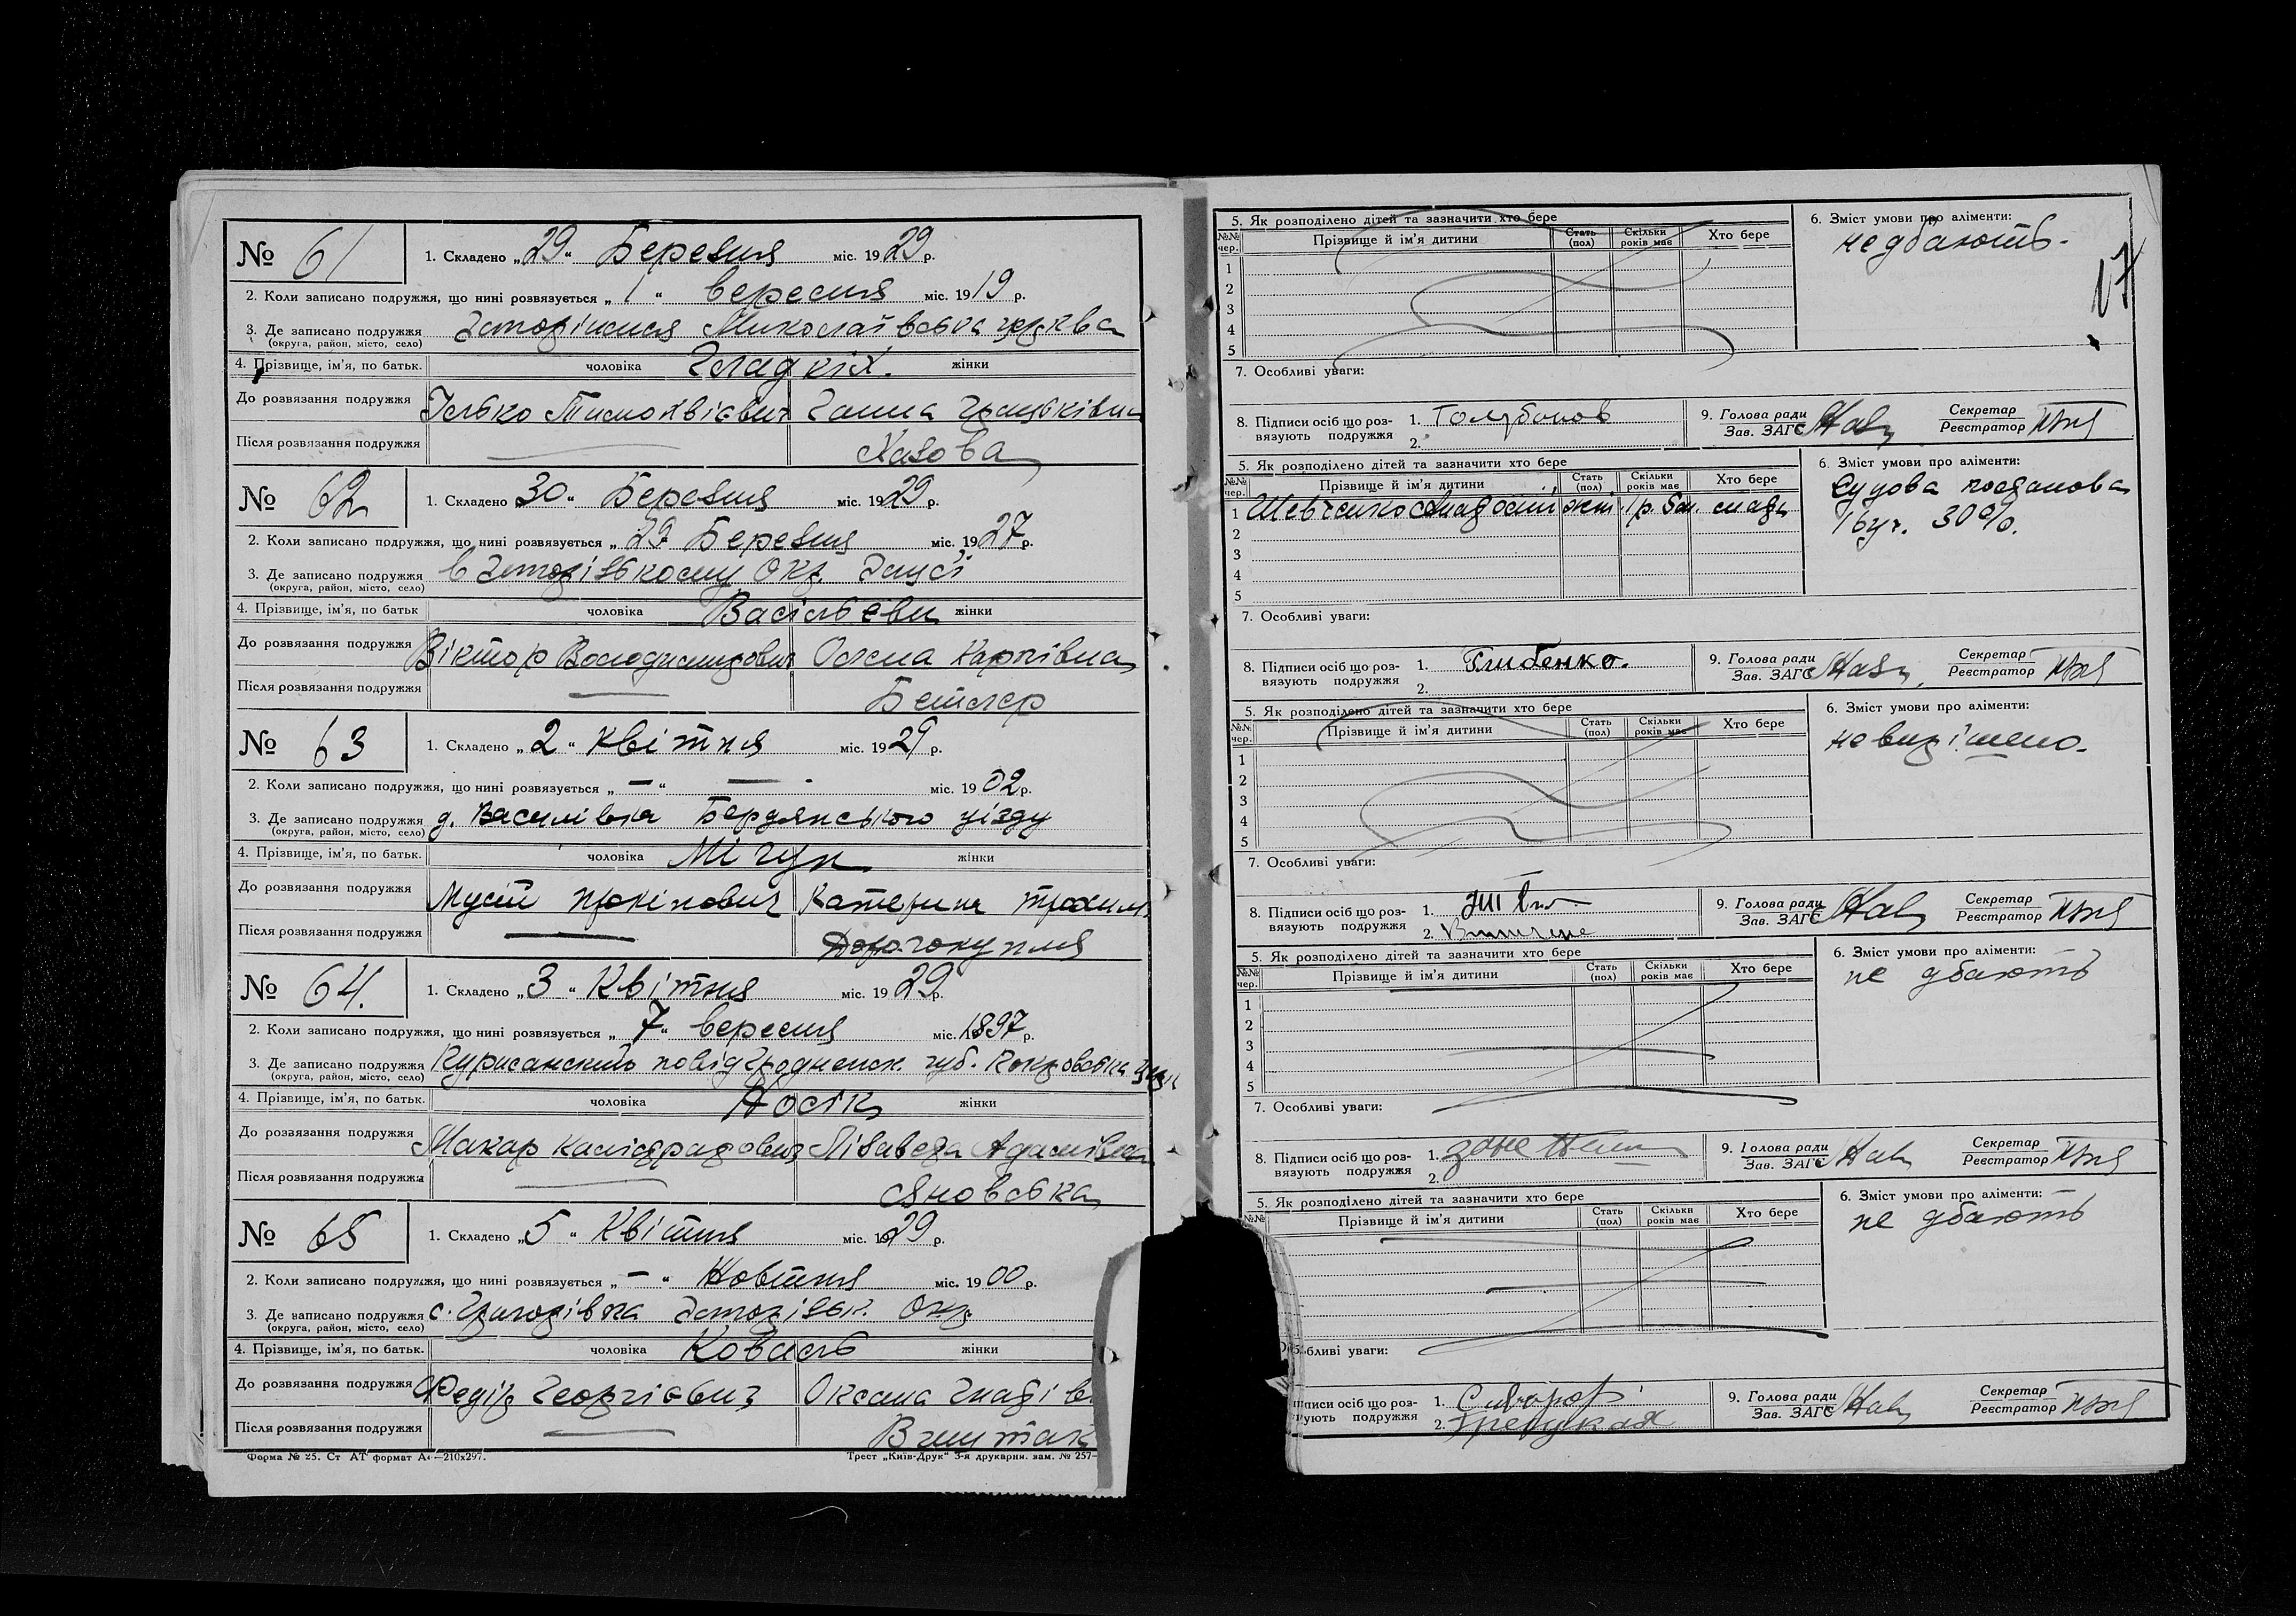 № 61
1. Складено „29“ Березня міс. 1929 р.
2. Коли записано подружжя, що нині розвязується „1“ вересня міс. 1919 р.
3. Де записано подружжя Миколаївська церква
(округа, район, місто, село)
4. Прізвище, ім'я, по батьк. чоловіка Гладкіх. жінки
До розвязання подружжя Ілько Тимохвієвич Ганна
Після розвязання подружжя
№ 62
1. Складено 30“ Березня міс. 1929 р.
2. Коли записано подружжя, що нині розвязується „29 Березня міс. 1927 р.
3. Де записано подружжя в Запорізькому Окр. Загсі
(округа, район, місто, село)
4. Прізвище, ім'я, по батьк чоловіка Васільєви жінки
До розвязання подружжя Віктор Володимирович Карпівна
Після розвязання подружжя
№ 63
1. Складено „2“ Квітня міс. 1929 р.
2. Коли записано подружжя, що нині розвязується „—“ — міс. 1902 р.
3. Де записано подружжя д. Василівка Бердянського уїзду
(округа, район, місто, село)
4. Прізвище, ім'я, по батьк. чоловіка Мігун жінки
До розвязання подружжя Мусій Прокіпович Катерина Трохим.
Після розвязання подружжя — Дорогокупля
№ 64.
1. Складено „3“ Квітня міс. 1929 р.
2. Коли записано подружжя, що нині розвязується „7“ вересня міс. 1897 р.
3. Де записано подружжя повід Гродненск. губ. Покровська
(округа, район, місто, село)
4. Прізвище, ім'я, по батьк. чоловіка Носік жінки
До розвязання подружжя Макар Лізавета Адамівна
Після розвязання подружжя — Яновська
№ 65
1. Складено „5“ Квітня міс. 1929 р.
2. Коли записано подружжя, що нині розвязується „—“ Жовтня міс. 1900 р.
3. Де записано подружжя с. Григорівка Запорізьк. Окр.
(округа, район, місто, село)
4. Прізвище, ім'я, по батьк. чоловіка Коваль жінки
До розвязання подружжя Федір Георгіович Оксана
Після розвязання подружжя —
Форма № 25. Ст АТ формат А4—210х297. Трест „Київ-Друк“ 3-я друкарня. зам. № 257–
17
5. Як розподілено дітей та зазначити хто бере
6. Зміст умови про аліменти:
№№ чер. Прізвище й ім'я дитини Стать (пол) Скільки років має Хто бере
не дбають.
1
2
3
4
5
7. Особливі уваги:
8. Підписи осіб що розвязують подружжя 1. 2.
9. Голова ради Зав. ЗАГС Секретар Реєстратор
5. Як розподілено дітей та зазначити хто бере
6. Зміст умови про аліменти:
№№ чер. Прізвище й ім'я дитини Стать (пол) Скільки років має Хто бере
Судова постанова
1 Шевченко жін. 1 р. 5 м.
30%.
2
3
4
5
7. Особливі уваги:
8. Підписи осіб що розвязують подружжя 1. Глибенко. 2.
9. Голова ради Зав. ЗАГС Секретар Реєстратор
5. Як розподілено дітей та зазначити хто бере
6. Зміст умови про аліменти:
№№ чер. Прізвище й ім'я дитини Стать (пол) Скільки років має Хто бере
не вирішено.
1
2
3
4
5
7. Особливі уваги:
8. Підписи осіб що розвязують подружжя 1. 2.
9. Голова ради Зав. ЗАГС Секретар Реєстратор
5. Як розподілено дітей та зазначити хто бере
6. Зміст умови про аліменти:
№№ чер. Прізвище й ім'я дитини Стать (пол) Скільки років має Хто бере
не дбають
1
2
3
4
5
7. Особливі уваги:
8. Підписи осіб що розвязують подружжя 1. 2.
9. Голова ради Зав. ЗАГС Секретар Реєстратор
5. Як розподілено дітей та зазначити хто бере
6. Зміст умови про аліменти:
№№ Прізвище й ім'я дитини Стать (пол) Скільки років має Хто бере
не дбають
бливі уваги:
писи осіб що роз-
ують подружжя 1. 2.
9. Голова ради Зав. ЗАГС Секретар Реєстратор